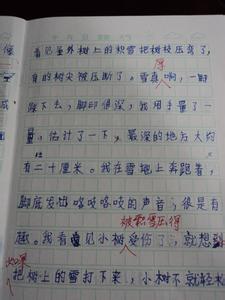 看见屋外树上的积雪把树枝压弯了，
有的树尖被压断了。雪真厚啊，一脚
踩下去，脚印很深，我用手量了一
量，估计了一下，最深的地方大约
有二十厘米。我在雪地上奔跑着，
脚底发出咯吱咯吱的声音，很是有
趣。我看见小树被积雪压得受伤了，就想到
把树上的雪打下来，小树不就轻松